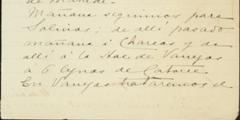 de
Mañana seguimos para
Salinas; de allí pasado
mañana á Charcas y de
allí á la Hac. de Vanegas
á 6 leguas de
En Vanegas trataremos el